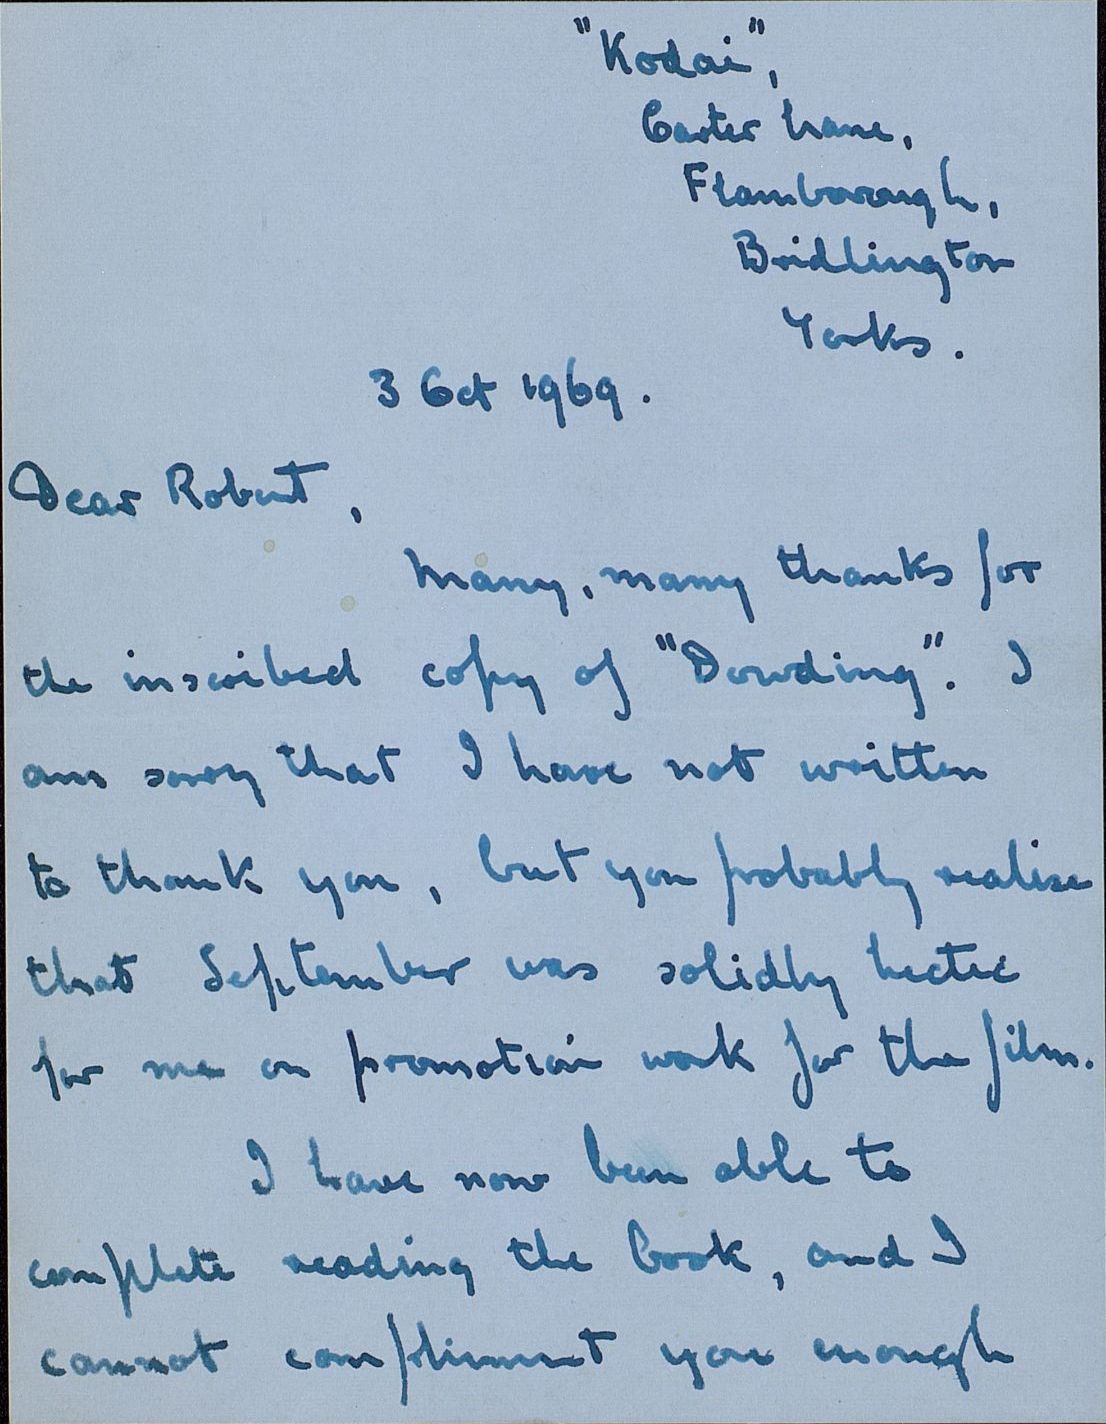 "Kodai",
Carter Lane,
Flamborough,
Bridlington
Yorks.
3 Oct 1969.
Dear Robert,
Many, many thanks for
the inscribed copy of "Dowding". I
am sorry that I have not written
to thank you, but you probably realise
that September was solidly hectic
for me on promotion work for the film.
I have now been able to
complete reading the book, and I
cannot compliment you enough